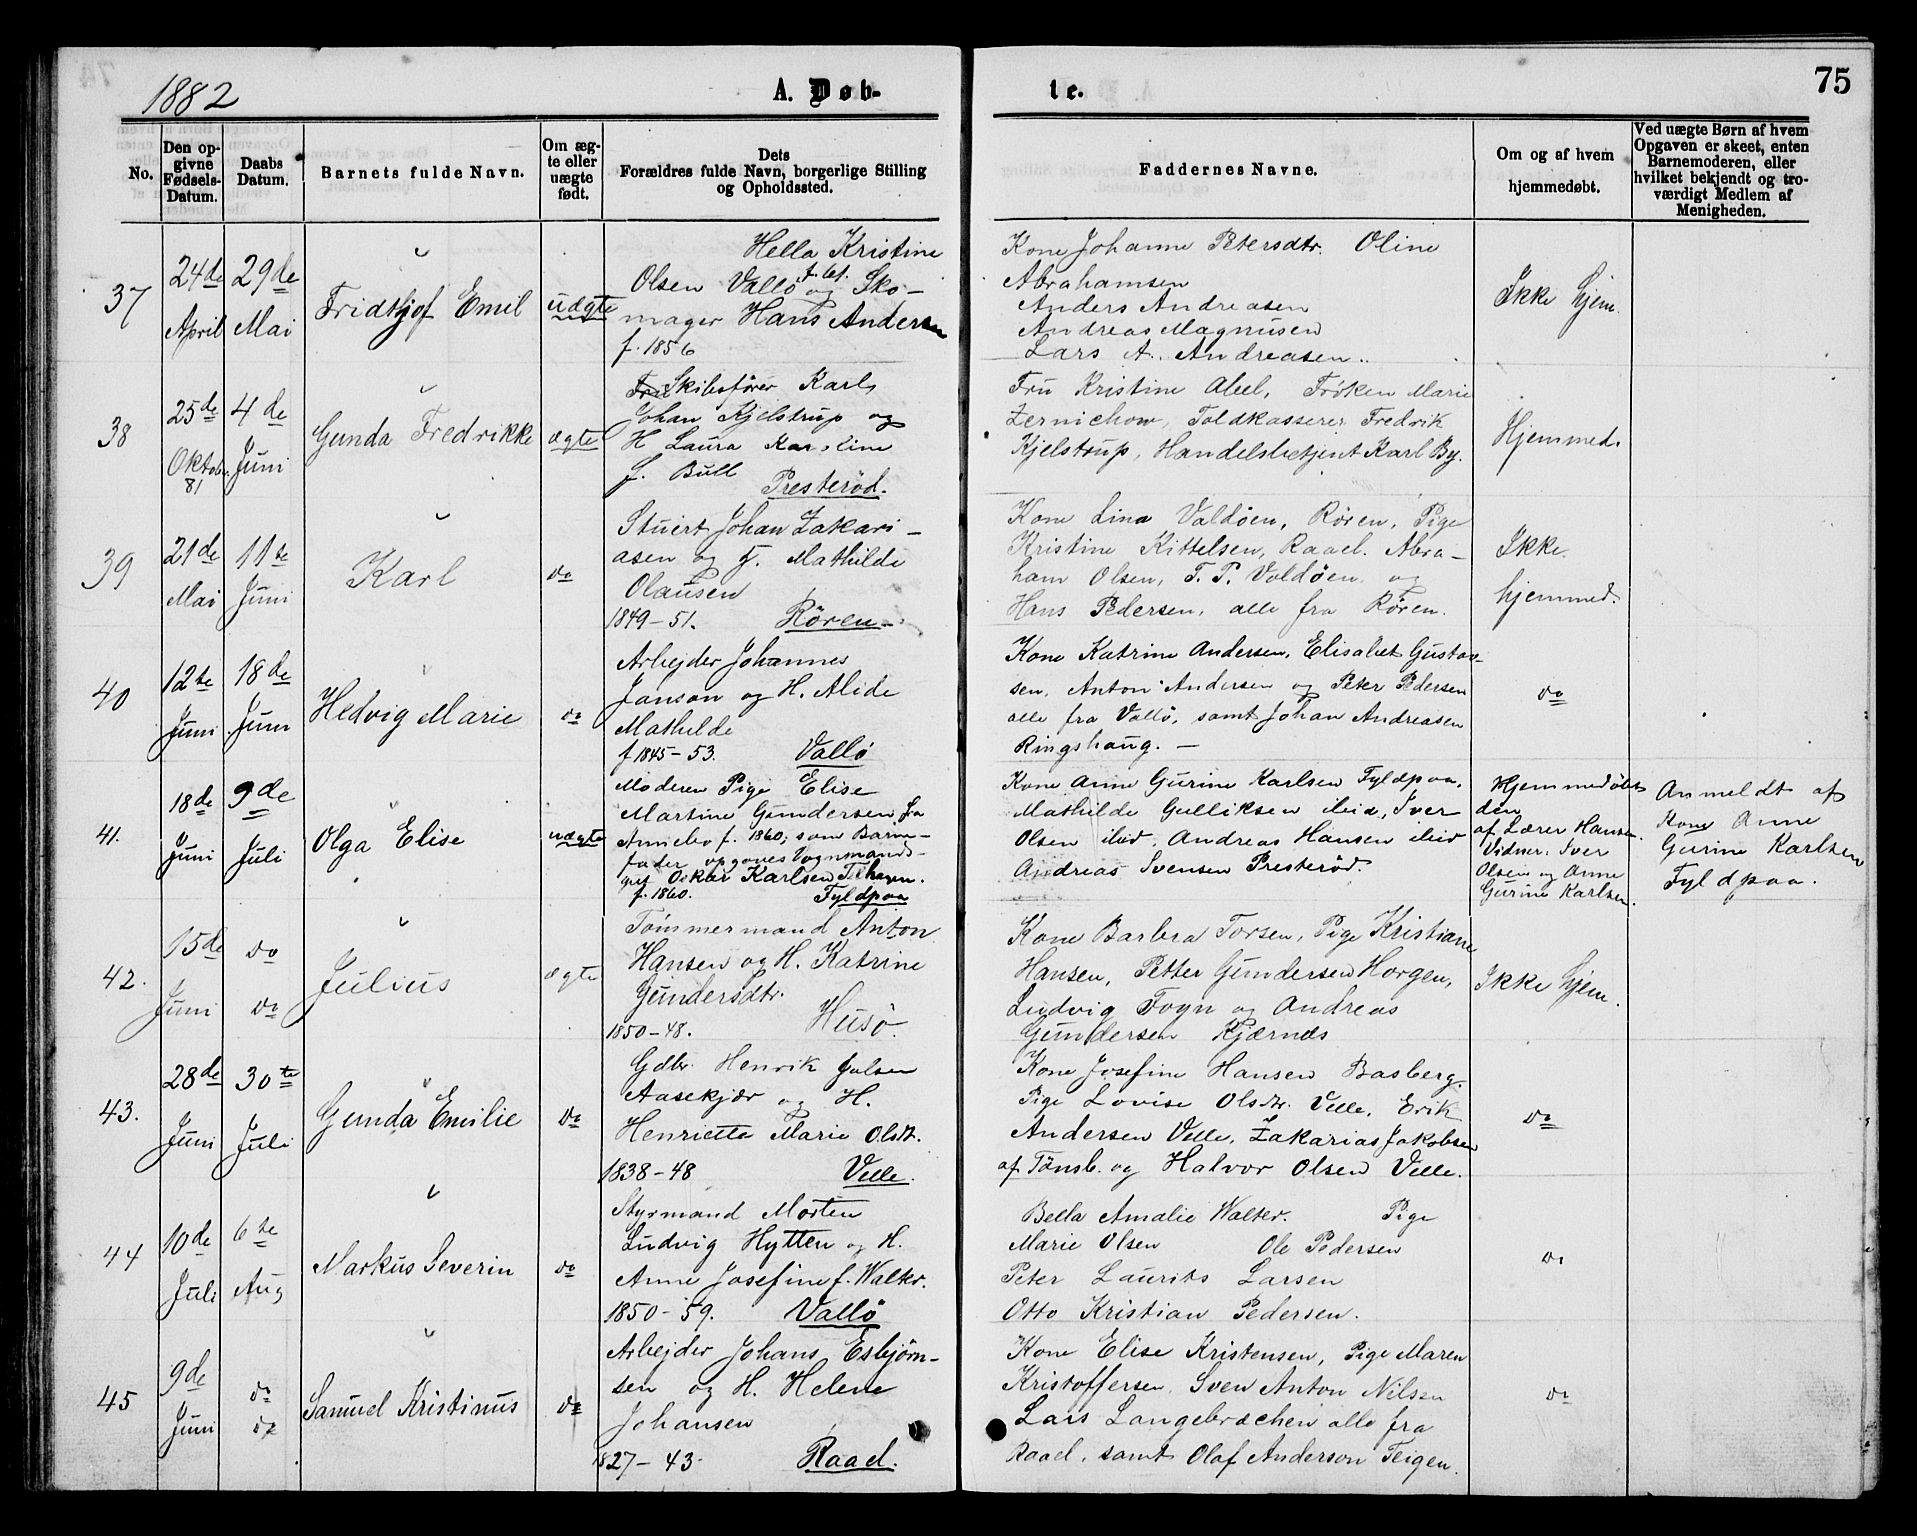 1882
A. Døb-
te.
75
No.
Den op-
givne
Fødsels-
Datum.
Daabs
Datum.
Barnets fulde Navn.
Om æg-
te eller
uægte
født.
Dets
Forældres fulde Navn, borgerlige Stilling
og Opholdssted.
Faddernes Navne.
Om og af hvem
hjemmedøbt.
Ved uægte Børn af hvem
Opgaven er skeet, enten
Barnemoderen, eller
hvilket bekjendt og tro-
værdigt Medlem af
Menigheden.
37
24de
April
29de
Mai
Fridthjof Emil
uægte
Hella Kristine
Olsen Vallø f. 61. og Sko-
mager Hans Andersen
f. 1856
Kone Johanne Petersdtr. Oline
Abrahamsen
Anders Andreasen
Andreas Magnusen
Lars A. Andreasen.
Ikke hjem.
38
25de
Oktober
81
4de
Juni
Gunda Fredrikke
ægte
Skibsfører Karl
Johan Kjelstrup og
H Laura Karoline
f. Bull
Presterød.
Fru Kristine Abel, Frøken Marie
Zernichow, Toldkasserer Fredrik
Kjelstrup, Handelsbetjent Karl By.
Hjemmed.
39
21de
Mai
11te
Juni
Karl
do
Stuert Johan Zakari-
asen og H. Mathilde
Olausen
1849-51. Røren.
Kone Lina Valdøen, Røren, Pige
Kristine Kittelsen, Raael. Abra-
ham Olsen, T. P. Valdøen og
Hans Pedersen, alle fra Røren.
Ikke
hjemmed.
40
12te
Juni
18de
Juni
Hedvig Marie
do
Arbejder Johannes
Janson og H. Alide
Mathilde
f 1845-53. Vallø
Kone Katrine Andersen, Elisabet Gustav-
sen, Anton Andersen og Peter Pedersen
alle fra Vallø, samt Johan Andreasen
Ringshaug. —
do
41.
18de
Juni
9de
Juli
Olga Elise
uægte
Moderen Pige Elise
Martine Gundersen fra
Annebo f. 1860; som Barne-
fader opgives Vognmands-
gut Oskar Karlsen T.havn.
f. 1860. Fyldpaa
Kone Anne Gurine Karlsen Fyldpaa,
Mathilde Gulliksen ibid, Iver
Olsen ibid, Andreas Hansen ibid
Andreas Svensen Presterød.
Hjemmedøbt
den
af Lærer Hansen.
Vidner: Iver
Olsen og Anne
Gurine Karlsen.
Anmeldt af
Kone Anne
Gurine Karlsen
Fyldpaa.
42.
15de
Juni
do
do
Julius
ægte
Tømmermand Anton
Hansen og H. Katrine
Gundersdtr.
1850-48. Husø.
Kone Barbra Torsen, Pige Kristiane
Hansen, Petter Gundersen Horgen,
Ludvig Fogn og Andreas
Gundersen Kjærnæs
Ikke hjem.
43.
28de
Juni
30te
Juli
Gunda Emilie
do
Gdbr. Henrik Julsen
Aasekjær og H.
Henriette Marie Olsdt.
1838-48 Velle.
Kone Josefine Hansen Basberg.
Pige Lovise Olsdtr. Velle, Erik
Andersen Velle, Zakarias Jakobsen
af Tønsb. og Halvor Olsen Velle.
do
44
10de
Juli
6te
Aug
Markus Severin
do
Styrmand Morten
Ludvig Hytten og H.
Anne Josefine f. Walter.
1850-59. Vallø
Bella Amalie Walter. Pige
Marie Olsen Ole Pedersen
Peter Laurits Larsen
Otto Kristian Pedersen.
do
45
9de
Juni
do
do
Samuel Kristinus
do
Arbejder Johans Esbjørn-
sen og H. Helene
Johansen
1827-43. Raael.
Kone Elise Kristensen, Pige Maren
Kristoffersen, Sven Anton Nilsen
Lars Langebræchen alle fra
Raael, samt Olaf Anderson Teigen.
do